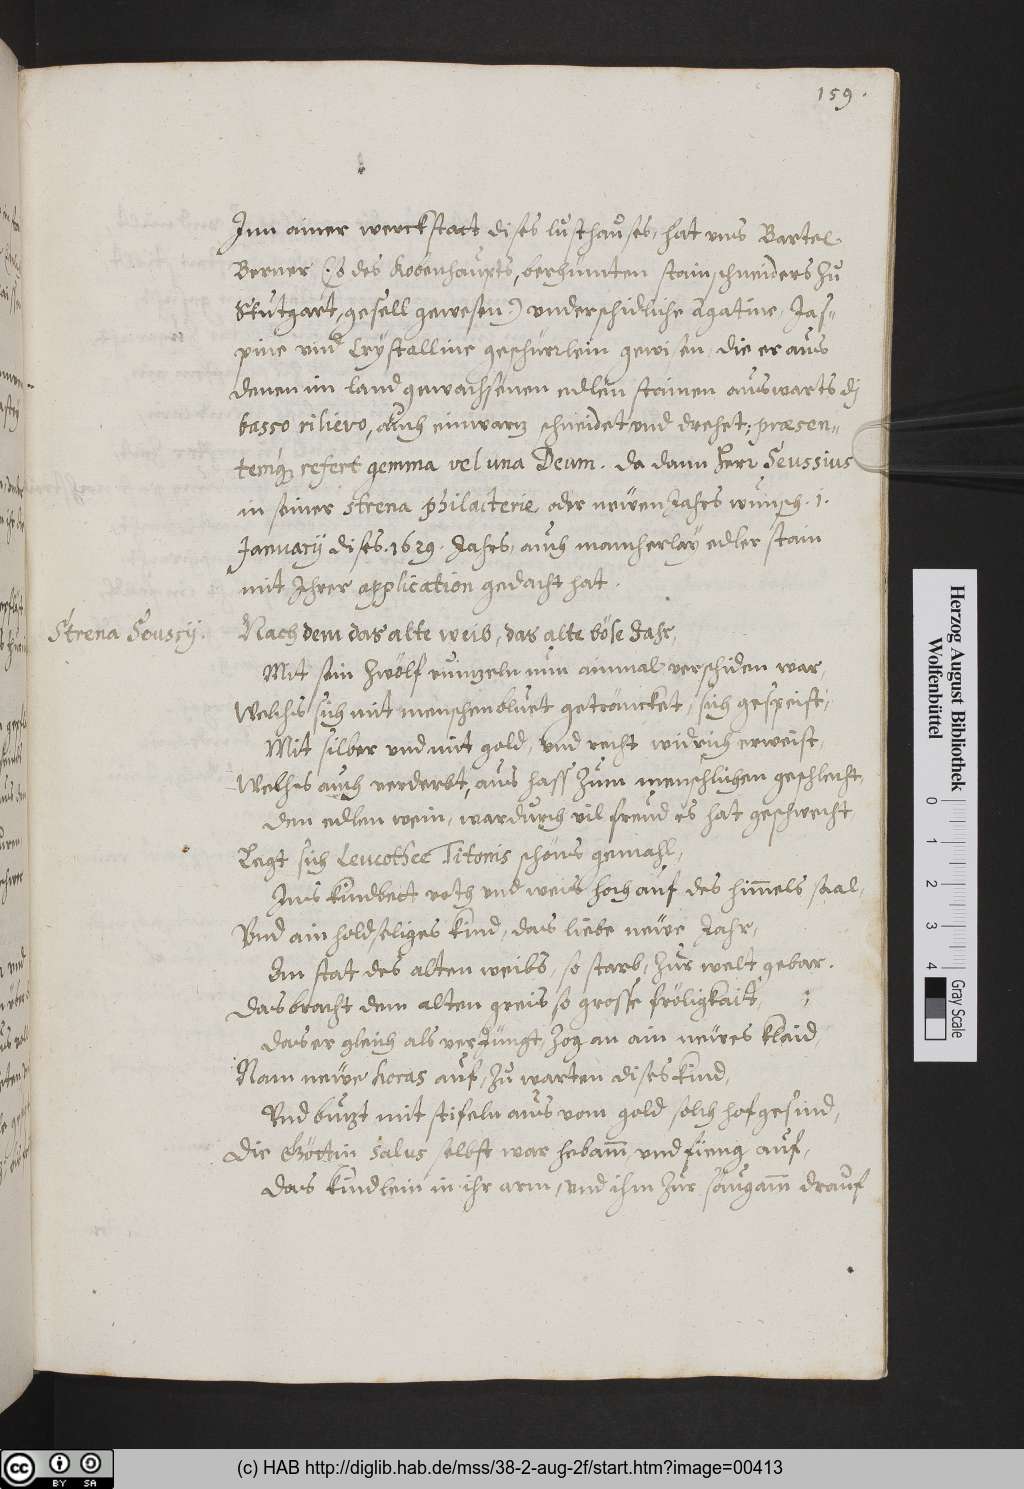 159.
Inn ainer werckstatt dises lusthauses, hat uns Bartel
Berner (: so des Kobenhaupts, berhümten stainschneiders zu
Stutgart, gesell gewesen :) underschidliche Agatine, Jas=
pine und Crystalline geschürrlein gewisen, die er aus
denen im land gewachsenen edlen stainen auswarts di
basso rilievo, auch einwarz schneidet und drehet; præsen=
temq3 refert gemma vel una Deum. da dann Herr Seussius
in seiner strena philacterie oder newen Jahrs wunsch. 1.
January dises 1629. Jahrs, auch mancherlay edler stain
mit Ihrer application gedacht hat.
Strena Seussij.
Nach dem das alte weib, das alte böse Jahr,
Mit sein zwölf runtzeln nun ainmal verschiden war,
Welches sich mit menschenbluet geträncket, sich gespeist,
Mit silber und mit gold, und recht widrich erweist,
Welches auch verderbt, aus hass zum menschlichen geschlecht,
den edlen wein, wardurch vil freud es hat geschwecht,
Legt sich Leucothee Titonis schöns gemahl,
Ins kindbett roth und weis hoch auf des himmels saal,
Und ain holdseliges kind, das liebe newe Jahr,
An stat des alten weibs, so starb, zur welt gebar.
das bracht dem alten greis so grosse fröligkait,
das er gleich als verjüngt, zog an ain newes klaid,
Nam newe horas auf, zu warten dises kind,
Und butzt mit stifeln aus vom gold solch hofgesind,
die Göttin Salus selbst war hebam, und fieng auf,
das kindlein in ihr arm, und ihm zur säugam drauf
Herzog August Bibliothek
Wolfenbüttel
0 1 2 3 4
Gray Scale
cc BY SA
(c) HAB http://diglib.hab.de/mss/38-2-aug-2f/start.htm?image=00413